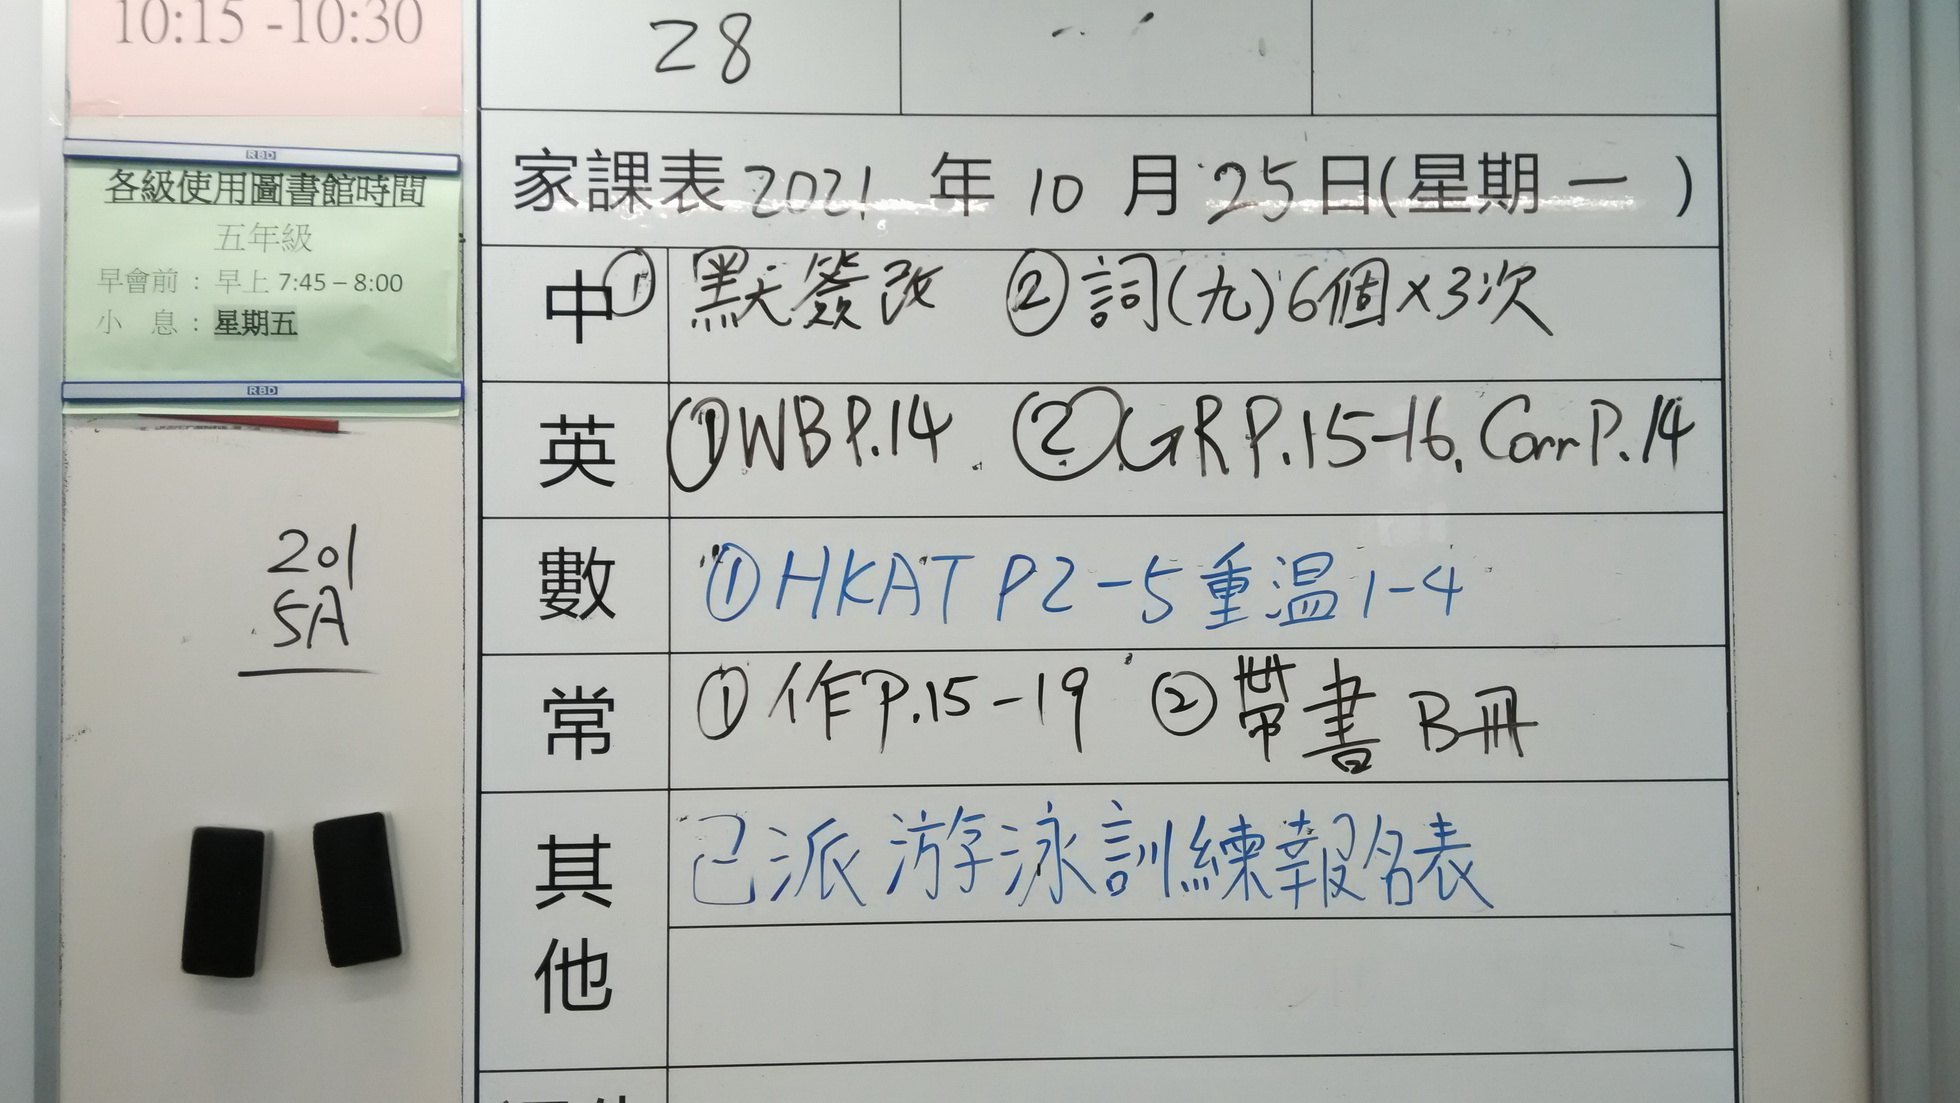 10:15 -10:30
28
RBD
各級使用圖書館時間
五年級
早會前 : 早上 7:45 – 8:00
小 息 : 星期五
RBD
201
5A
家課表 2021 年 10 月 25 日(星期 一 )
中 ① 默簽改 ② 詞(九)6個×3次
英 ① WB P.14 ② GR P.15-16, Corr P.14
數 ① HKAT P2-5 重温 1-4
常 ① 作 P.15-19 ② 帶書 B冊
其他 已派游泳訓練報名表